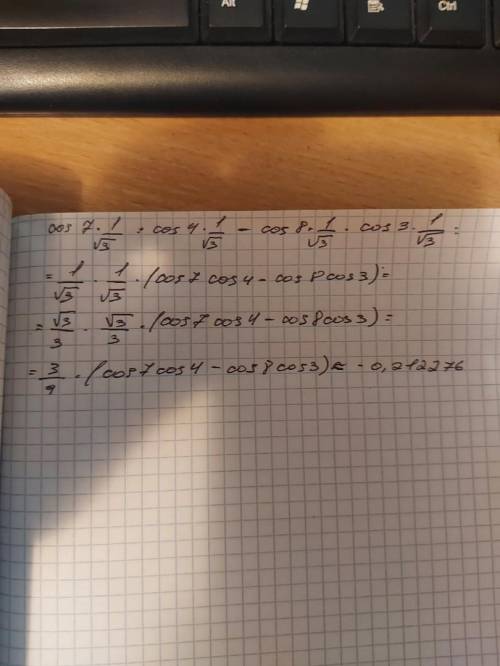 Alt
Ctrl
cos 7 · 1/√3 · cos 4 · 1/√3 − cos 8 · 1/√3 · cos 3 · 1/√3 =
= 1/√3 · 1/√3 · (cos 7 cos 4 − cos 8 cos 3) =
= √3/3 · √3/3 · (cos 7 cos 4 − cos 8 cos 3) =
= 3/9 · (cos 7 cos 4 − cos 8 cos 3) ≈ − 0,212276